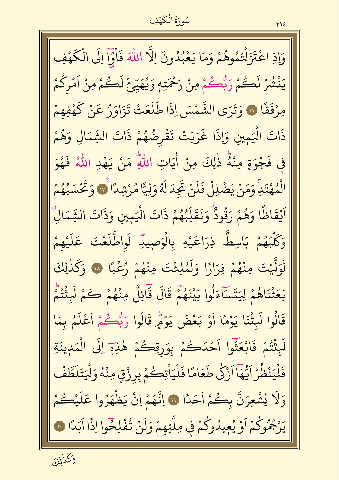 سُورَةُ الْكَهْفِ
٢٩٤
وَاِذِ اعْتَزَلْتُمُوهُمْ وَمَا يَعْبُدُونَ اِلَّا اللّٰهَ فَأْوُٓا اِلَى الْكَهْفِ
يَنْشُرْ لَكُمْ رَبُّكُمْ مِنْ رَحْمَتِهِ وَيُهَيِّئْ لَكُمْ مِنْ اَمْرِكُمْ
مِرْفَقًا ١٦ وَتَرَى الشَّمْسَ اِذَا طَلَعَتْ تَزَاوَرُ عَنْ كَهْفِهِمْ
ذَاتَ الْيَمِينِ وَاِذَا غَرَبَتْ تَقْرِضُهُمْ ذَاتَ الشِّمَالِ وَهُمْ
فِى فَجْوَةٍ مِنْهُ ذٰلِكَ مِنْ اٰيَاتِ اللّٰهِ مَنْ يَهْدِ اللّٰهُ فَهُوَ
الْمُهْتَدِ وَمَنْ يُضْلِلْ فَلَنْ تَجِدَ لَهُ وَلِيًّا مُرْشِدًا ١٧ وَتَحْسَبُهُمْ
اَيْقَاظًا وَهُمْ رُقُودٌ وَنُقَلِّبُهُمْ ذَاتَ الْيَمِينِ وَذَاتَ الشِّمَالِ
وَكَلْبُهُمْ بَاسِطٌ ذِرَاعَيْهِ بِالْوَصِيدِ لَوِاطَّلَعْتَ عَلَيْهِمْ
لَوَلَّيْتَ مِنْهُمْ فِرَارًا وَلَمُلِئْتَ مِنْهُمْ رُعْبًا ١٨ وَكَذٰلِكَ
بَعَثْنَاهُمْ لِيَتَسَٓاءَلُوا بَيْنَهُمْ قَالَ قَٓائِلٌ مِنْهُمْ كَمْ لَبِثْتُمْ
قَالُوا لَبِثْنَا يَوْمًا اَوْ بَعْضَ يَوْمٍ قَالُوا رَبُّكُمْ اَعْلَمُ بِمَا
لَبِثْتُمْ فَابْعَثُٓوا اَحَدَكُمْ بِوَرِقِكُمْ هٰذِهِٓ اِلَى الْمَدِينَةِ
فَلْيَنْظُرْ اَيُّهَٓا اَزْكٰى طَعَامًا فَلْيَأْتِكُمْ بِرِزْقٍ مِنْهُ وَلْيَتَلَطَّفْ
وَلَا يُشْعِرَنَّ بِكُمْ اَحَدًا ١٩ اِنَّهُمْ اِنْ يَظْهَرُوا عَلَيْكُمْ
يَرْجُمُوكُمْ اَوْ يُعِيدُوكُمْ فِى مِلَّتِهِمْ وَلَنْ تُفْلِحُٓوا اِذًا اَبَدًا ٢٠
وَكَذٰلِكَ